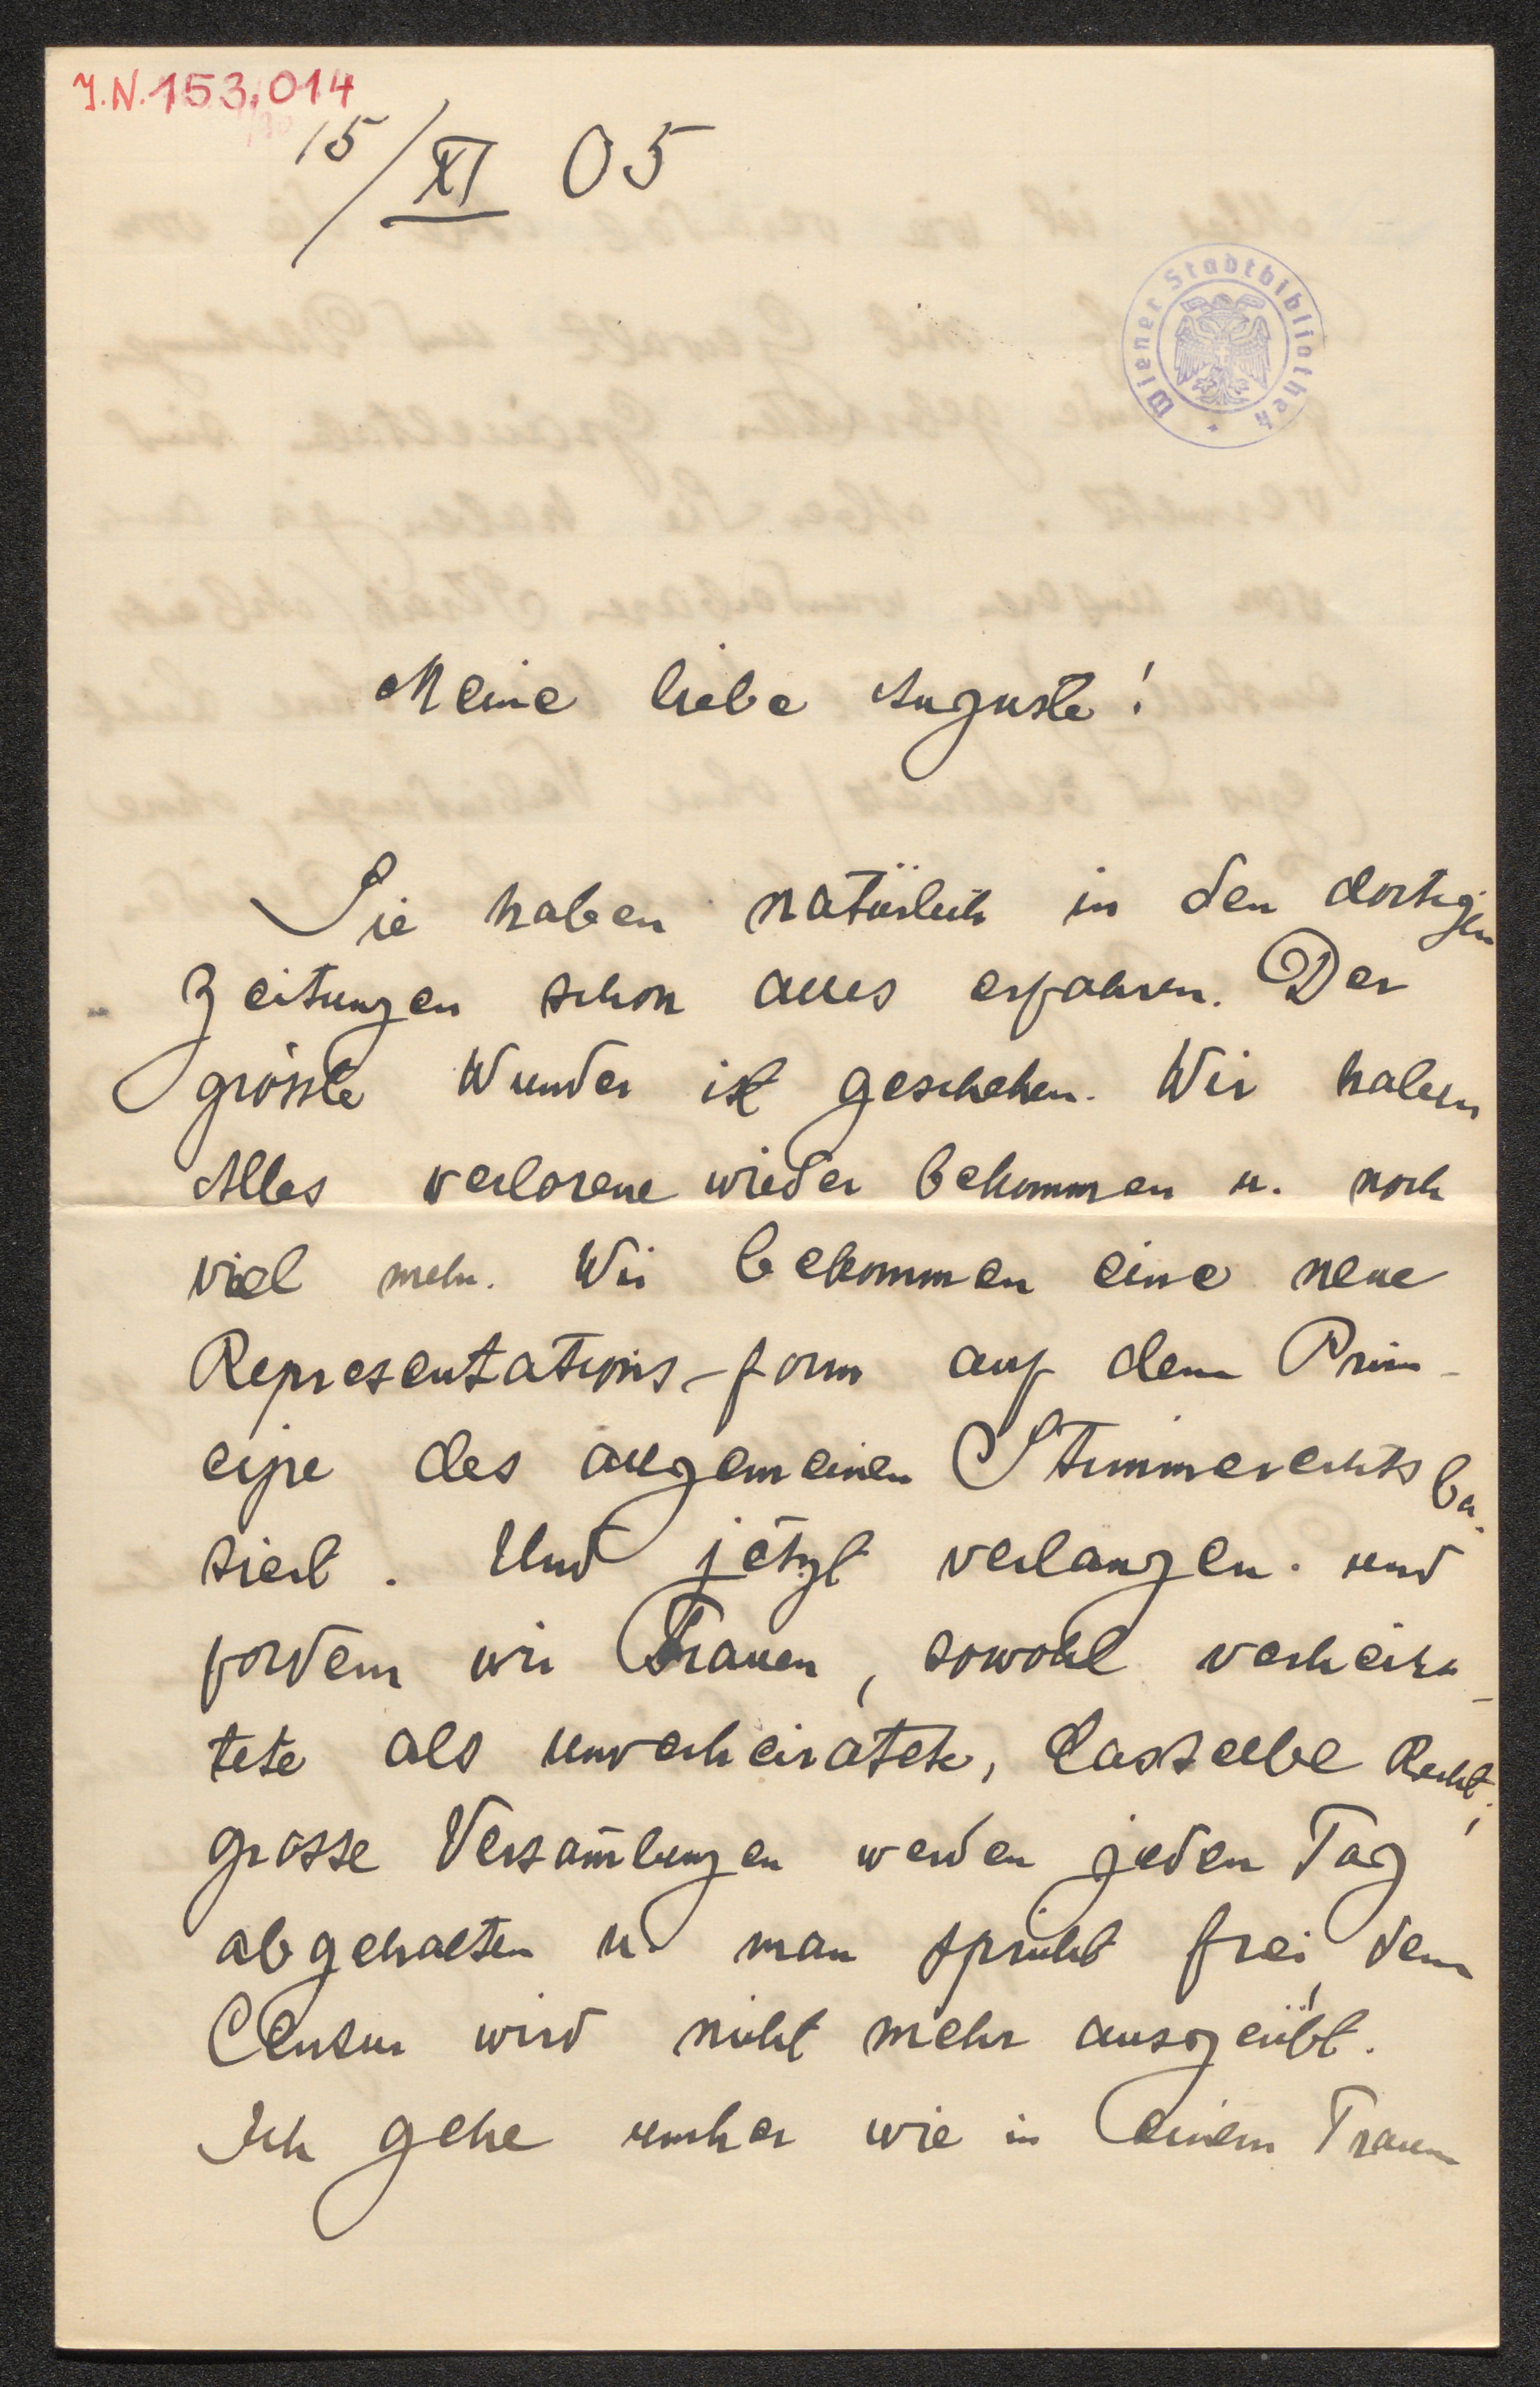 J.N. 153.014
15/XI 05
Wiener Stadtbibliothek
Meine liebe Auguste!
Sie haben natürlich in den dortigen
Zeitungen schon alles erfahren. Der
grösste Wunder ist geschehen. Wir haben
Alles verlorene wieder bekommen u. noch
viel mehr. Wir bekommen eine neue
Representations-form auf dem Prin-
cipe des allgemeinen Stimmerechts ba-
siert. Und jetzt verlangen und
fordern wir Frauen, sowohl verheira-
tete als unverheiratete, dasselbe Recht;
grosse Versam̄lungen werden jeden Tag
abgehalten u. man spricht frei, denn
Censur wird nicht mehr ausgeübt.
Ich gehe umher wie in einem Traum